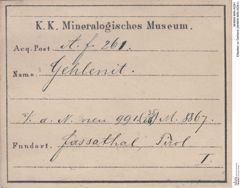 K. K. Mineralogisches Museum.
Acq. Post A. f. 261.
Name Gehlenit.
a. N. neu 991 M. 8867.
Fundort. Fassathal, Tirol
I.